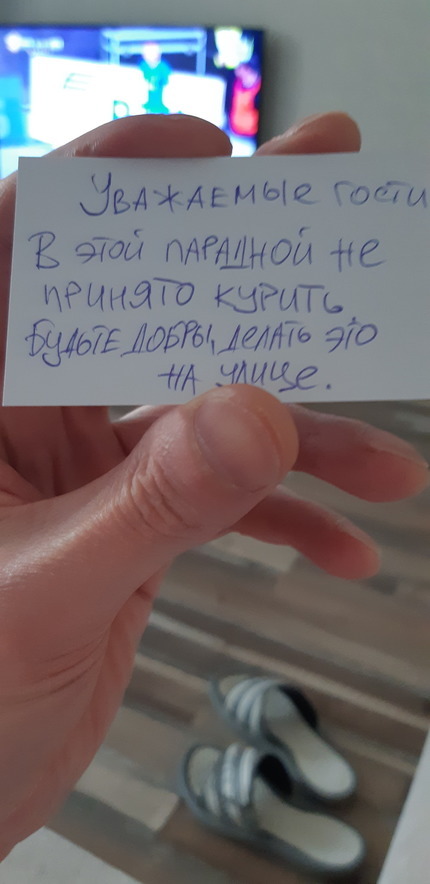 Уважаемые гости
В этой парадной не
принято курить,
будьте добры, делать это
на улице.